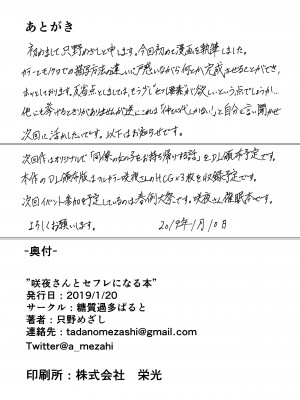 あとがき
初めまして、只野めざしと申します。今回初めて漫画を執筆しました。
カラーとモノクロでの描写方法の違いに戸惑いながら何とか完成させることができ、
ほっとしております。反省点としましては、もう少しセリフ要素が欲しいという点でしょうか…
他にも挙げるときりがありませんが、逆にこれは「伸びしろしかない！」と自分に言い聞かせ
次回に活かしたいです。以下はお知らせです。
次回作はオリジナルで「同僚の女の子をお持ち帰りする話」をDL頒布予定です。
本作のDL頒布版はフルカラー咲夜さんのHCG×3枚を収録予定です。
次回イベント参加を予定しているのは春例大祭です。咲夜さん催眠本です。
よろしくお願いします。 2019年1月10日
-奥付-
”咲夜さんとセフレになる本”
発行日：2019/1/20
サークル：糖質過多ぱると
著者：只野めざし
連絡先：tadanomezashi@gmail.com
Twitter@a_mezahi
印刷所：株式会社 栄光